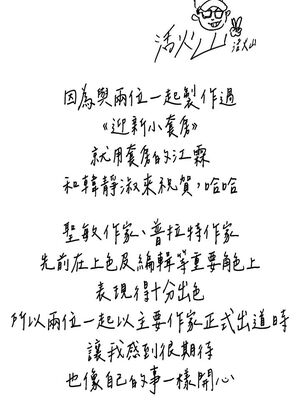 活火山
活火山
因為與兩位一起製作過
《迎新小套房》
就用套房的江霖
和韓靜淑來祝賀，哈哈
聖敏作家、普拉特作家
先前在上色及編輯等重要角色上
表現得十分出色
所以兩位一起以主要作家正式出道時
讓我感到很期待
也像自己的事一樣開心